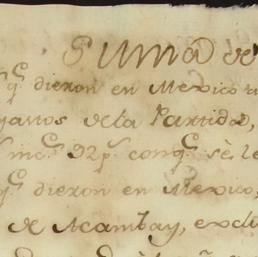 Suma de
q.e dieron en Mexico a
gastos de la Partida,
mc.s 92 p.s con q.e se le
q.e dieron en Mexico,
de Acambay, exclu